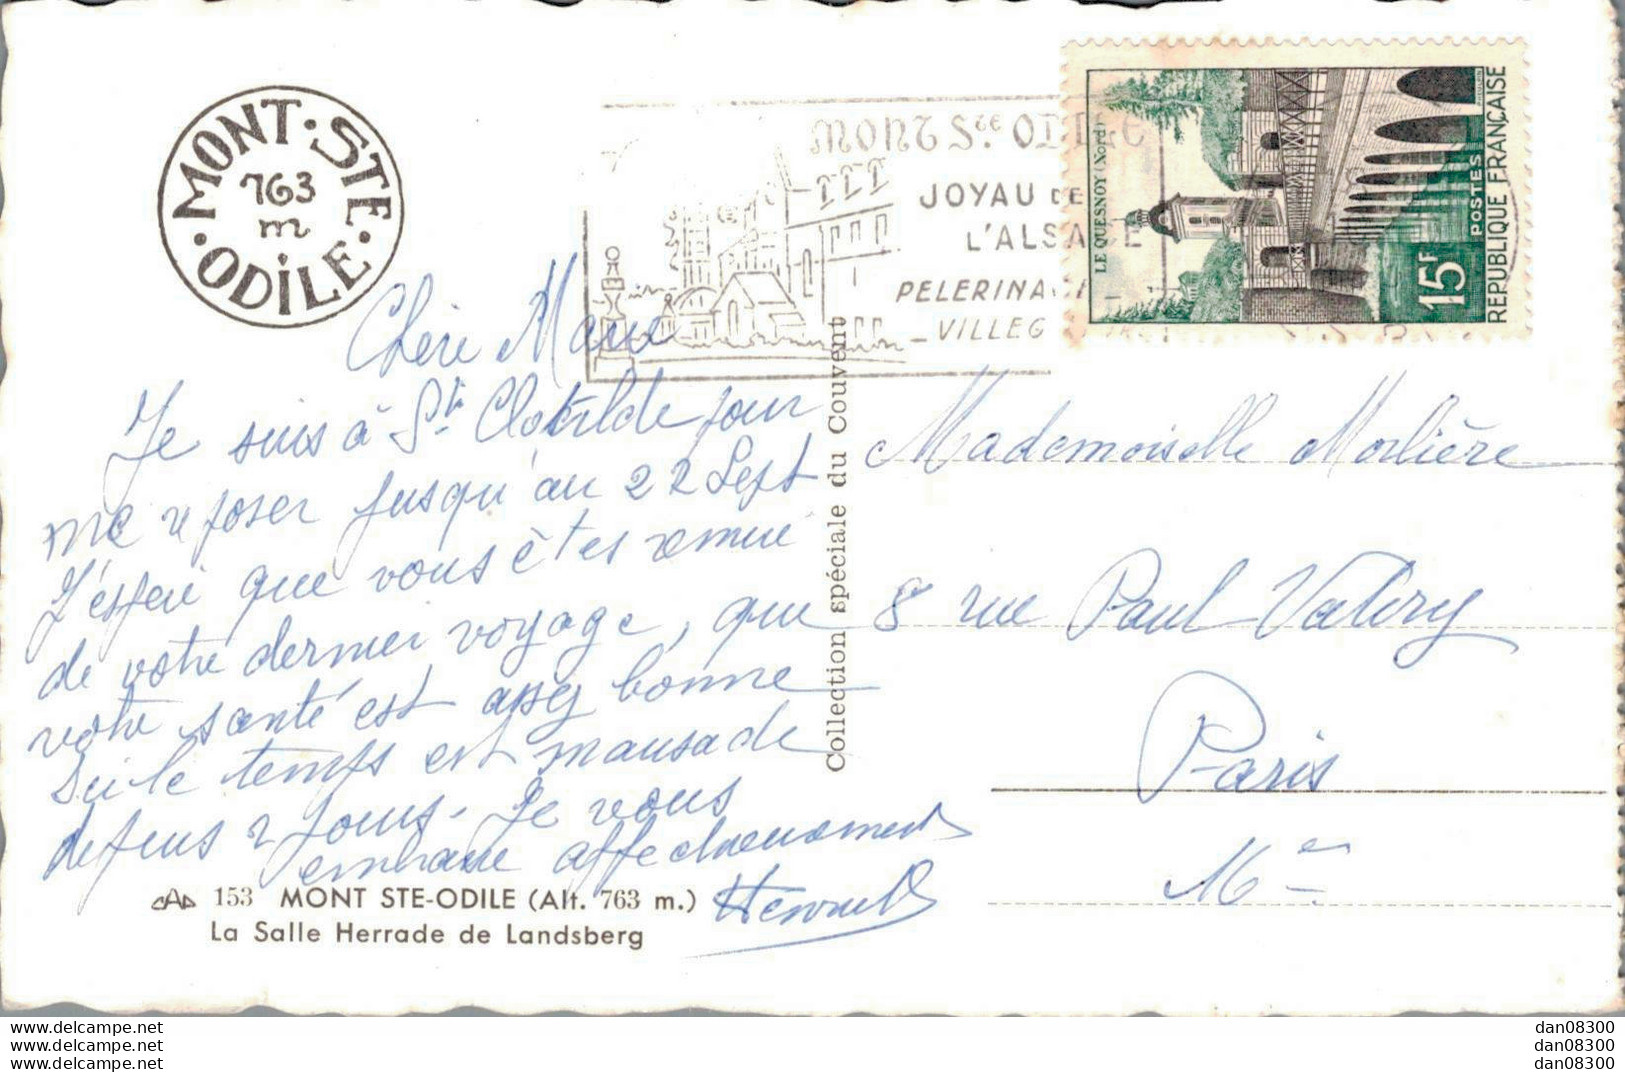 MONT·STE·ODILE·
763
m
MONT Ste ODILE
JOYAU DE
L'ALSACE
PELERINAG
VILLEG
LE QUESNOY (Nord)
15F
POSTES
REPUBLIQUE FRANÇAISE
Chère Marie
Je suis à Ste Clotilde pour
me reposer jusqu'au 22 Sept
J'espère que vous êtes remise
de votre dernier voyage, que
votre santé est assez bonne
Ici le temps est maussade
depuis 2 jours. Je vous
embrasse affectueusement
Collection spéciale du Couvent
Mademoiselle Morlière
8 rue Paul Valery
Paris
CAP 153 MONT STE-ODILE (Alt. 763 m.)
La Salle Herrade de Landsberg
www.delcampe.net
www.delcampe.net
www.delcampe.net
dan08300
dan08300
dan08300